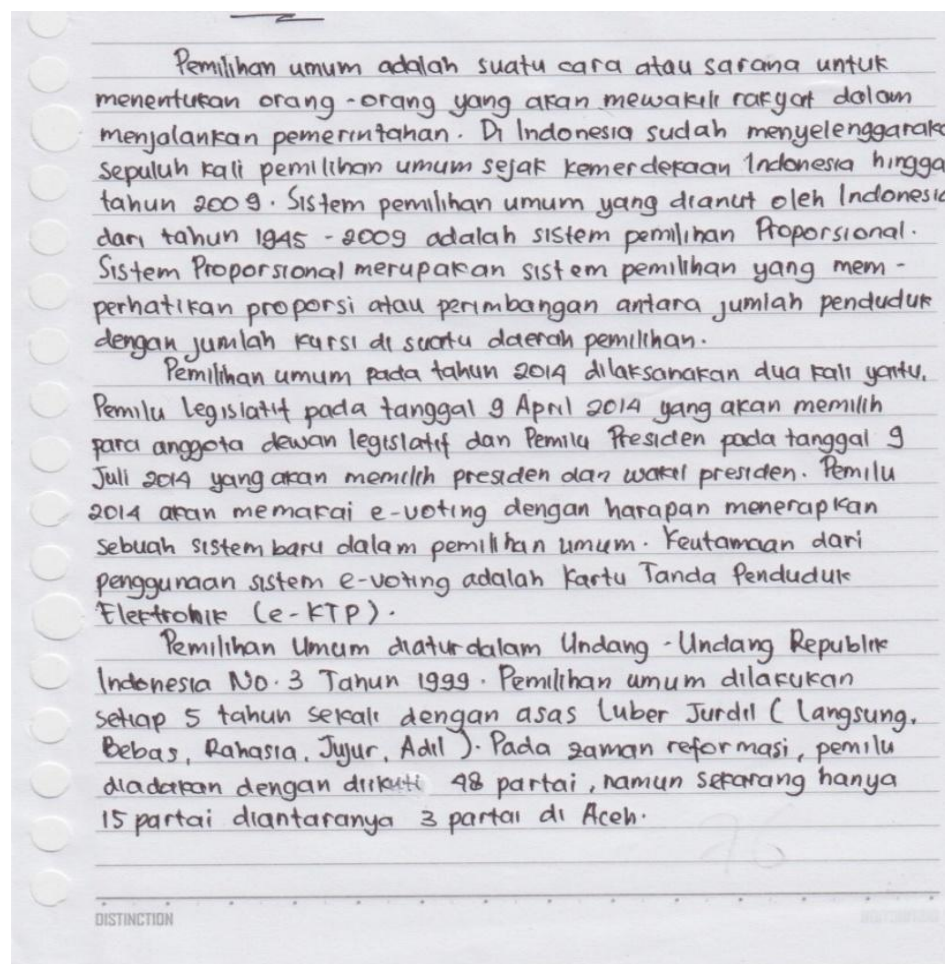 Pemilihan umum adalah suatu cara atau sarana untuk
menentukan orang-orang yang akan mewakili rakyat dalam
menjalankan pemerintahan. Di Indonesia sudah menyelenggaraka
sepuluh kali pemilihan umum sejak kemerdekaan Indonesia hingga
tahun 2009. Sistem pemilihan umum yang dianut oleh Indonesia
dari tahun 1945 - 2009 adalah sistem pemilihan Proporsional.
Sistem Proporsional merupakan sistem pemilihan yang mem-
perhatikan proporsi atau perimbangan antara jumlah penduduk
dengan jumlah kursi di suatu daerah pemilihan.
Pemilihan umum pada tahun 2014 dilaksanakan dua kali yaitu,
Pemilu Legislatif pada tanggal 9 April 2014 yang akan memilih
para anggota dewan legislatif dan Pemilu Presiden pada tanggal 9
Juli 2014 yang akan memilih presiden dan wakil presiden. Pemilu
2014 akan memakai e-voting dengan harapan menerapkan
sebuah sistem baru dalam pemilihan umum. Keutamaan dari
penggunaan sistem e-voting adalah Kartu Tanda Penduduk
Elektronik (e-KTP).
Pemilihan Umum diatur dalam Undang-Undang Republik
Indonesia No. 3 Tahun 1999. Pemilihan umum dilakukan
setiap 5 tahun sekali dengan asas Luber Jurdil (Langsung,
Bebas, Rahasia, Jujur, Adil). Pada zaman reformasi, pemilu
diadakan dengan diikuti 48 partai, namun sekarang hanya
15 partai diantaranya 3 partai di Aceh.
DISTINCTION